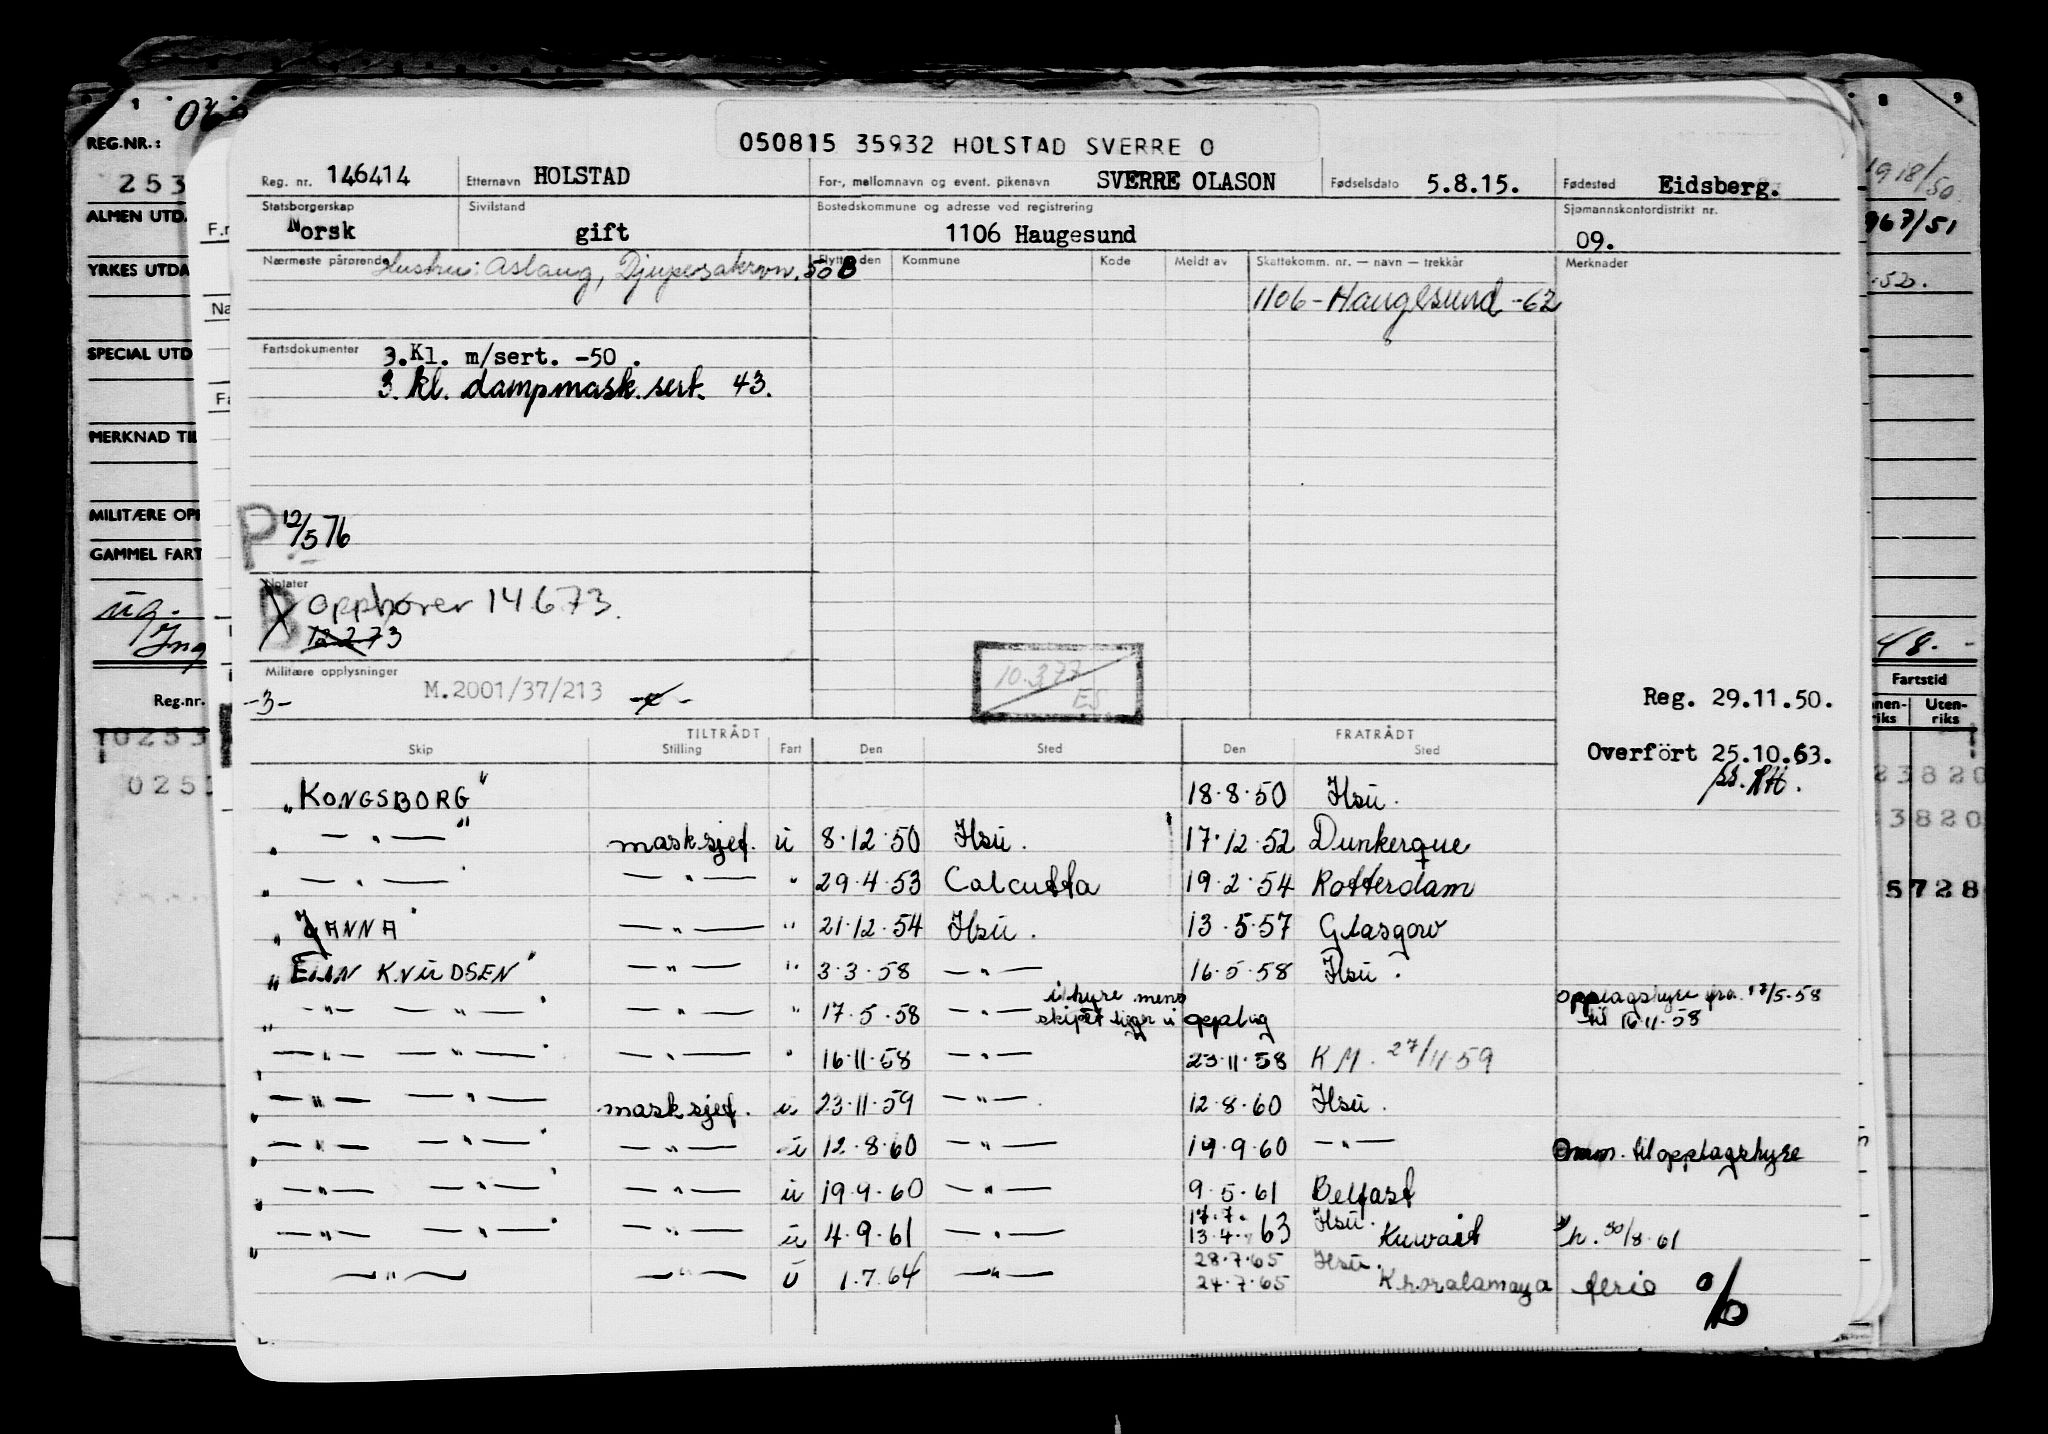 050815 35932 HOLSTAD SVERRE O
Reg. nr. 146414 Etternavn HOLSTAD For-, mellomnavn og event. pikenavn SVERRE OLASON Fødselsdato 5.8.15. Fødested Eidsberg.
Statsborgerskap Sivilstand Bostedskommune og adresse ved registrering Sjømannskontordistrikt nr.
Norsk gift 1106 Haugesund 09.
Nærmeste pårørende Hustru: Aslaug, 50 B Flyttet den Kommune Kode Meldt av Skattekomm. nr. — navn — trekkår Merknader
1106 - Haugesund -62
Fartsdokumenter 3.Kl. m/sert. -50 .
3. kl. dampmask. sert. 43.
P 12/5 76
Notater
B opphører 14.6.73.
12.2.73
Militære opplysninger
-3- M.2001/37/213
10.3.77
ES
Reg. 29.11.50.
Overført 25.10.63.
TILTRÅDT FRATRÅDT
Skip Stilling Fart Den Sted Den Sted
"KONGSBORG" 18.8.50 Hsu.
" — " — " masksjef. u 8.12.50 Hsu. 17.12.52 Dunkerque
" — " — " — " — " 29.4.53 Calcutta 19.2.54 Rotterdam
"JANNA" — " — " 21.12.54 Hsu. 13.5.57 Glasgow
"ELIN KNUDSEN" — " — " 3.3.58 — " — 16.5.58 Hsu.
" — " — — " — " — " — " 17.5.58 — " — i hyre mens skipet ligger i opplag opplagshyre fra 17/5-58 til 16.11.58
" — " — — " — " — " — " 16.11.58 — " — 23.11.58 KM. 27/11.59
" — " — — " — " masksjef. u 23.11.59 — " — 12.8.60 Hsu.
" — " — — " — " — " — u 12.8.60 — " — 19.9.60 — " — til opplagshyre
" — " — — " — " — " — u 19.9.60 — " — 9.5.61 Belfast
" — " — — " — " — " — u 4.9.61 — " — 17.7. 13.4. 63 Hsu. Kuwait h. 30/8.61
" — " — — " — u 1.7.64 — " — 28.7.65 Hsu.
24.7.65 ferie
REG.NR.:
253
ALMEN UTDA
YRKES UTDA
SPECIAL UTD
MERKNAD TIL
MILITÆRE OPP
GAMMEL FART
Reg.nr.
10253
025
1918/50
967/51
48. -
Fartstid
nen- Uten-
riks riks
23820
3820
5728